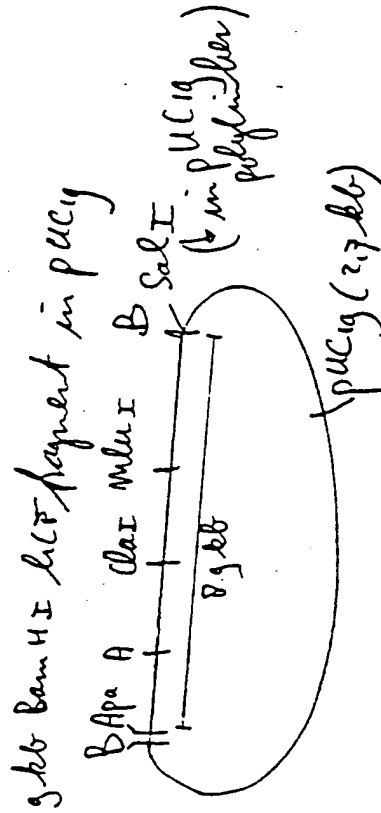 9 kb Bam HI hCF fragment in pUC19
B Apa A ClaI MluI B SalI
(↳ in pUC19
polylinker)
8.9 kb
pUC19 (2,7 kb)